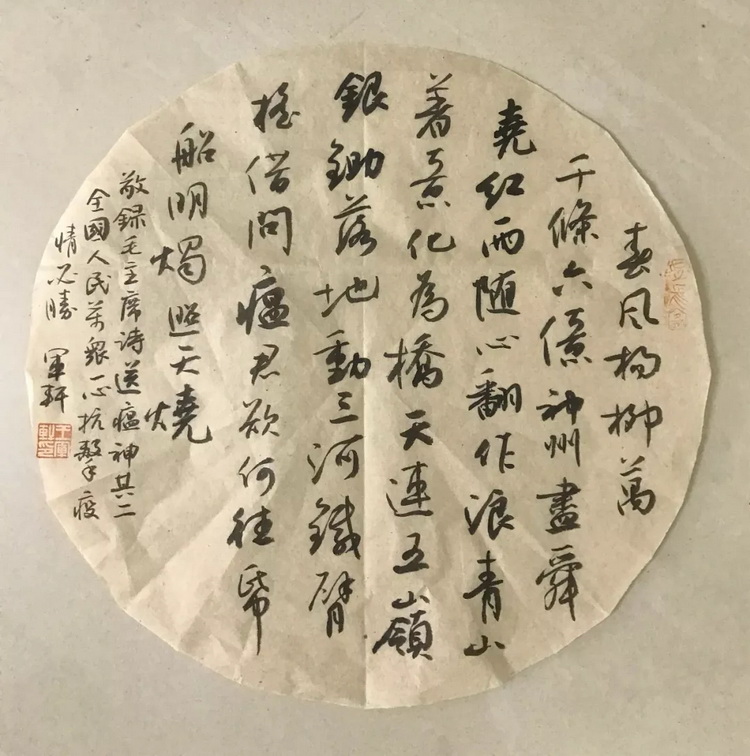 春风杨柳萬
千條六億神州盡舜
堯红雨随心翻作浪青山
著意化為橋天連五嶺
銀鋤落地動三河鐵臂
摇借問瘟君欲何往帋
船明燭照天燒
敬録毛主席诗送瘟神其二
全國人民萬眾一心抗擊疫
情必勝 軍軒